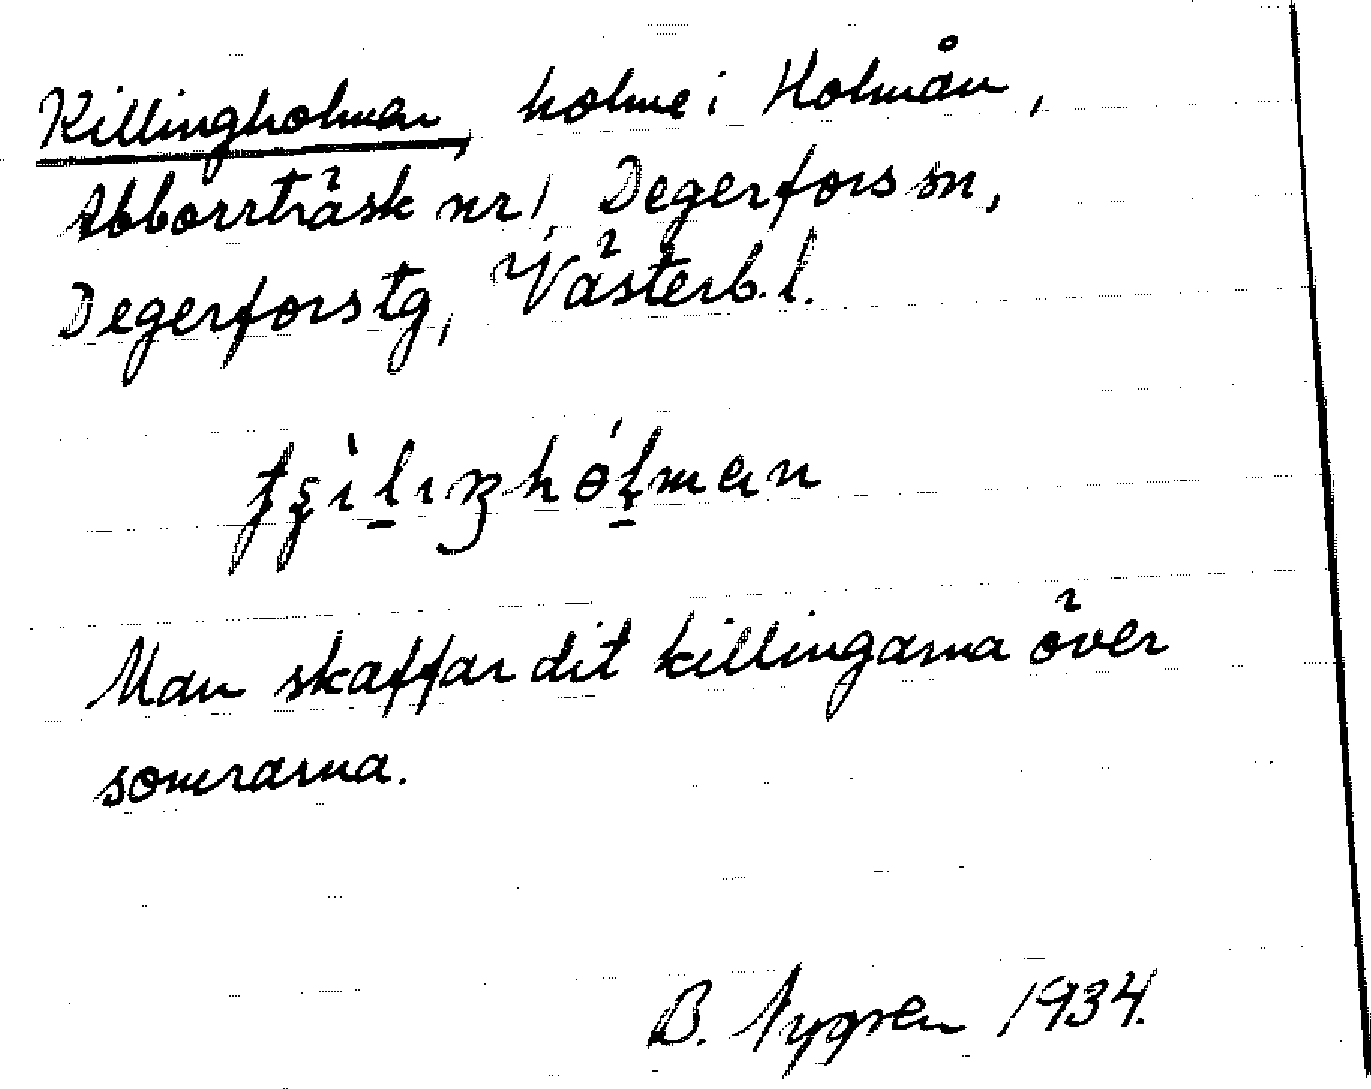 Killingholman, holme i Holmån,
Abborrträsk nr 1, Degerfors sn,
Degerfors tg, Västerb. l.
Man skaffar dit killingarna över
somrarna.
B. Nygren 1934.